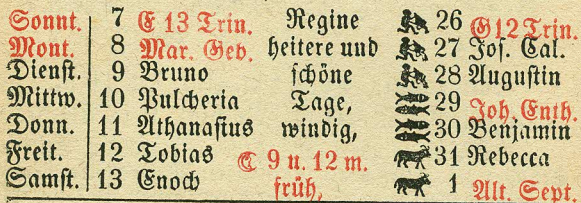 Sonnt. 7 E 13 Trin. Regine 26 G 12 Trin.
Mont. 8 Mar. Geb. heitere und 27 Jos. Cal.
Dienst. 9 Bruno schöne 28 Augustin
Mittw. 10 Pulcheria Tage, 29 Joh. Enth.
Donn. 11 Athanasius windig, 30 Benjamin
Freit. 12 Tobias ☾ 9 u. 12 m. 31 Rebecca
Samst. 13 Enoch früh, 1 Alt. Sept.